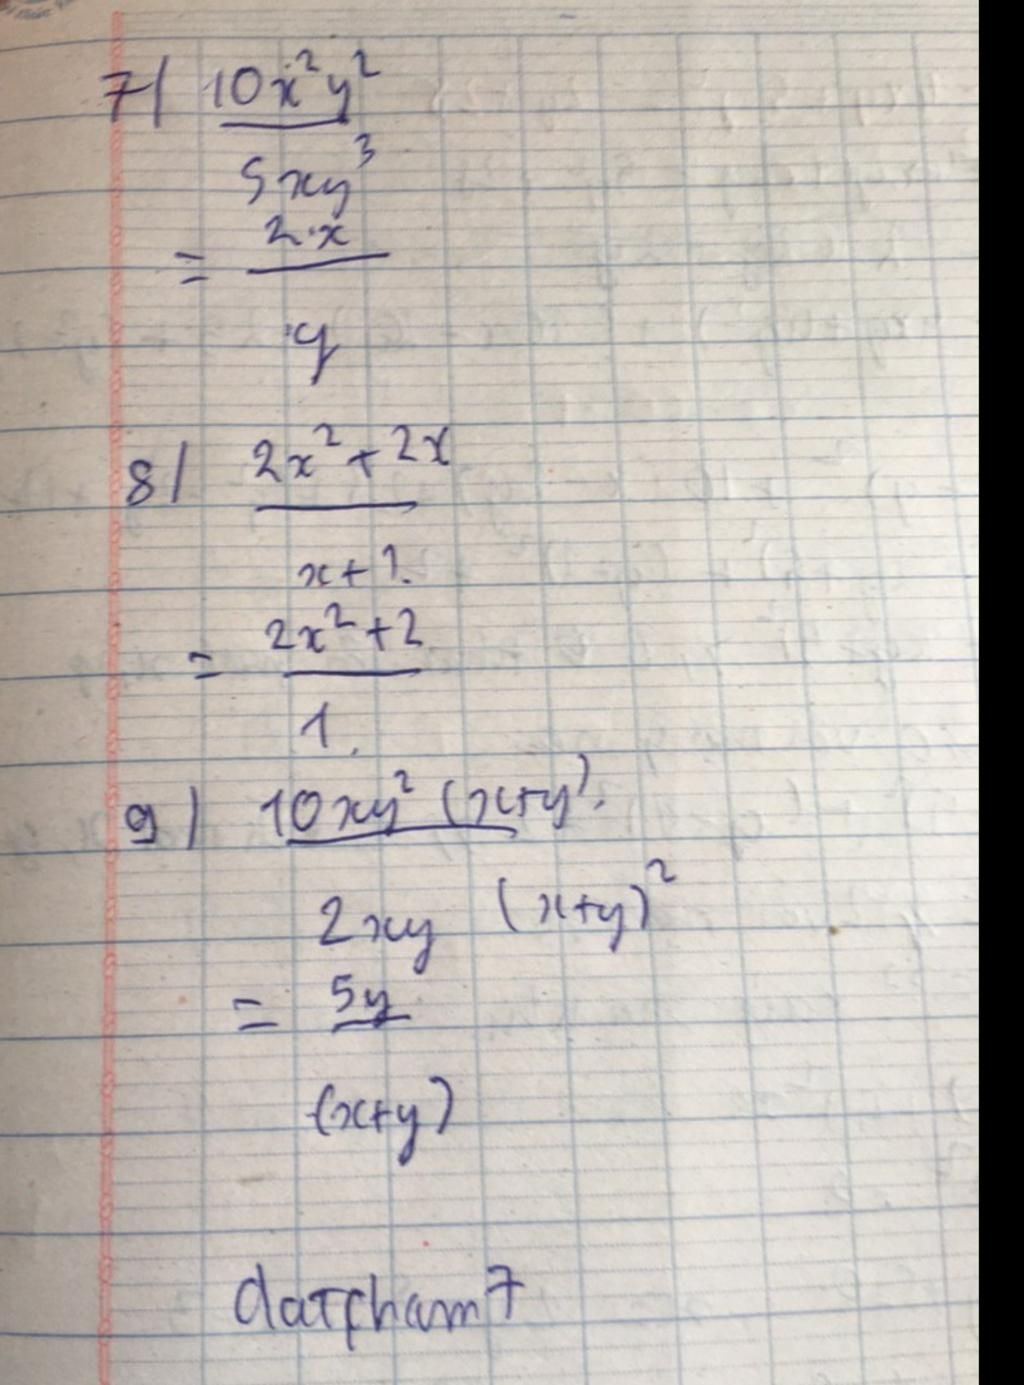 7/ 10x²y²
5xy³
= 2.x
y
8/ 2x²+2x
x+1.
= 2x²+2
1.
9/ 10xy² (x+y).
2xy (x+y)²
= 5y
(x+y)
datpham7